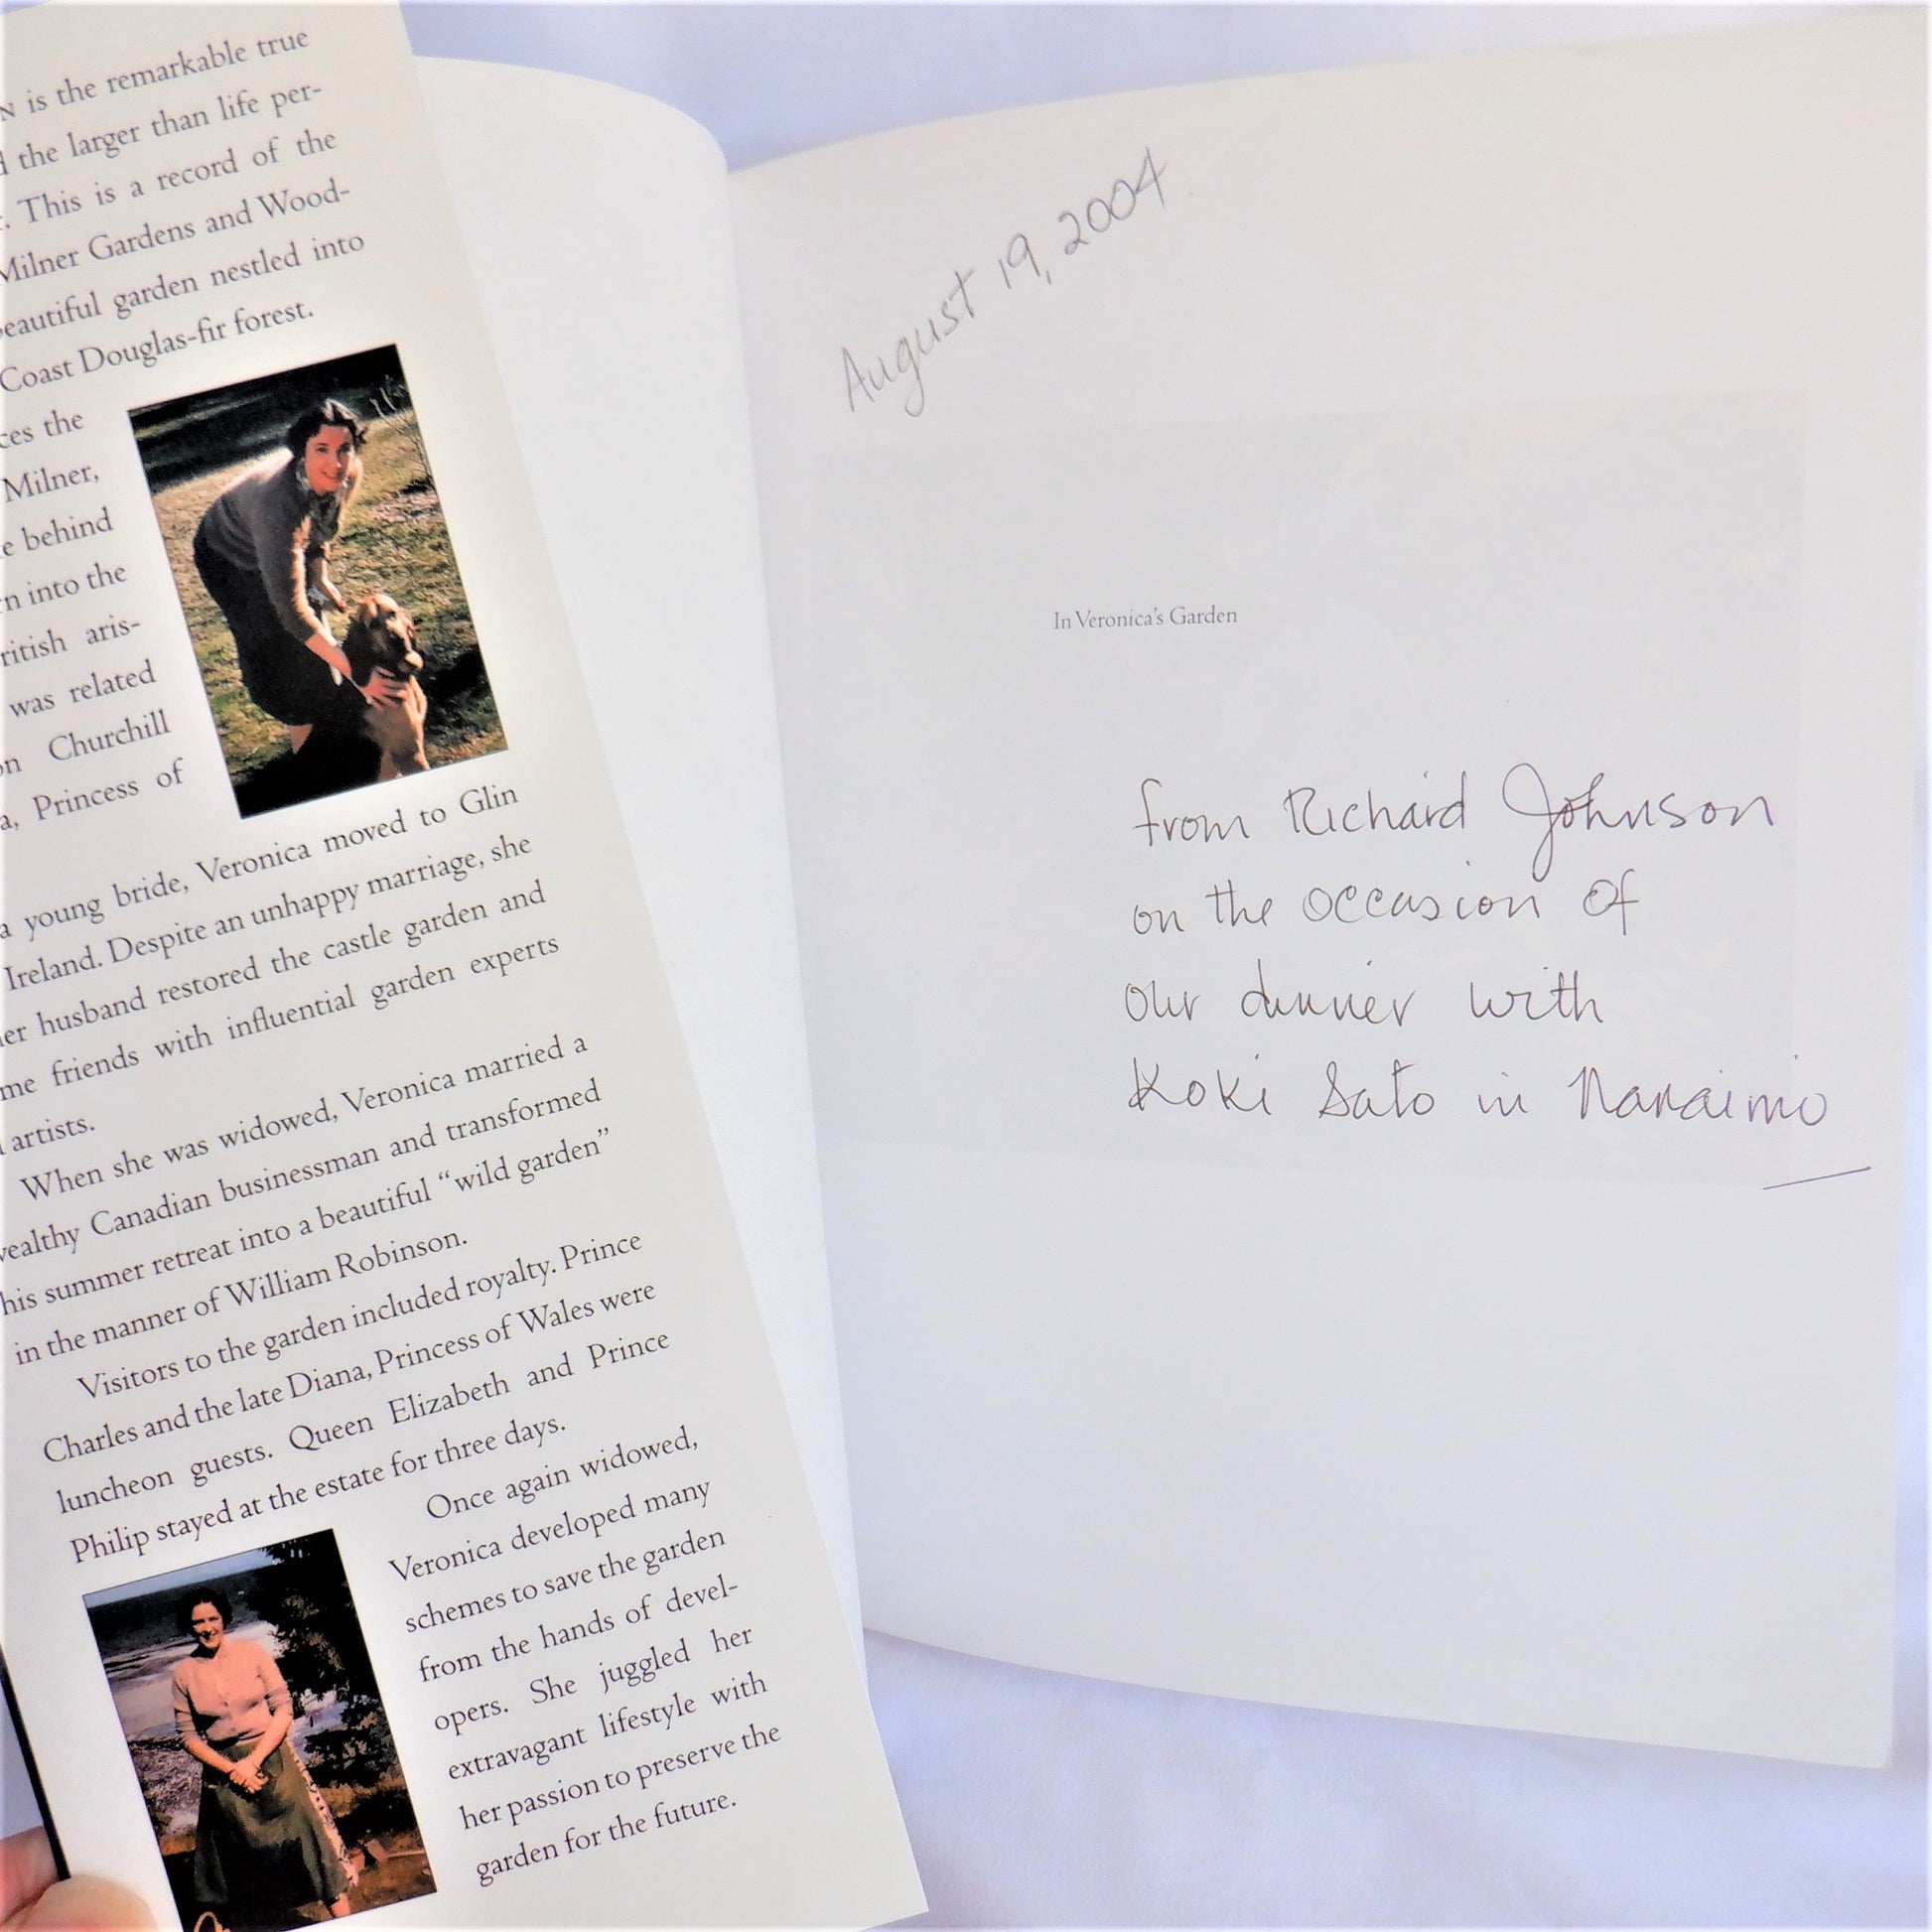 N is the remarkable true
the larger than life per-
. This is a record of the
Milner Gardens and Wood-
beautiful garden nestled into
Coast Douglas-fir forest.
the
Milner,
behind
into the
aris-
was related
Churchill
Princess of
a young bride, Veronica moved to Glin
Ireland. Despite an unhappy marriage, she
husband restored the castle garden and
friends with influential garden experts
artists.
When she was widowed, Veronica married a
wealthy Canadian businessman and transformed
his summer retreat into a beautiful “wild garden”
in the manner of William Robinson.
Visitors to the garden included royalty. Prince
Charles and the late Diana, Princess of Wales were
luncheon guests. Queen Elizabeth and Prince
Philip stayed at the estate for three days.
Once again widowed,
Veronica developed many
schemes to save the garden
from the hands of devel-
opers. She juggled her
extravagant lifestyle with
her passion to preserve the
garden for the future.
August 19, 2004
In Veronica's Garden
from Richard Johnson
on the occasion of
our dinner with
Koki Sato in Nanaimo